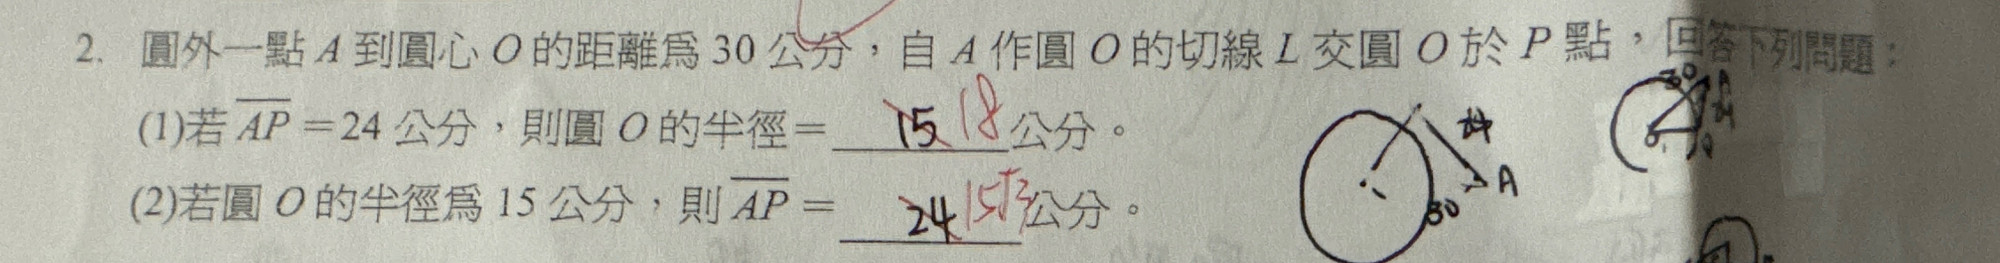 2. 圓外一點 A 到圓心 O 的距離為 30 公分，自 A 作圓 O 的切線 L 交圓 O 於 P 點，回答下列問題：
(1)若 AP = 24 公分，則圓 O 的半徑 = 15 18 公分。
(2)若圓 O 的半徑為 15 公分，則 AP = 24 15√3 公分。
30 A
A
30